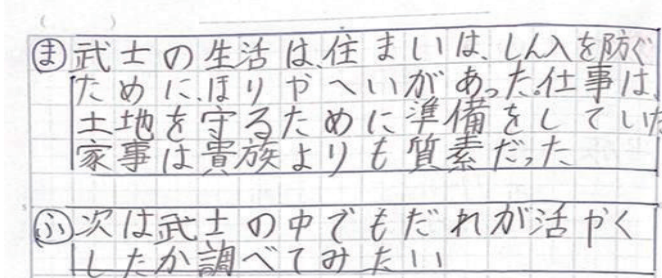 (ま) 武士の生活は、住まいは、しん入を防ぐ
ために、ほりやへいがあった。仕事は、
土地を守るために準備をしていた
家事は貴族よりも質素だった
(ふ) 次は武士の中でもだれが活やく
したか調べてみたい